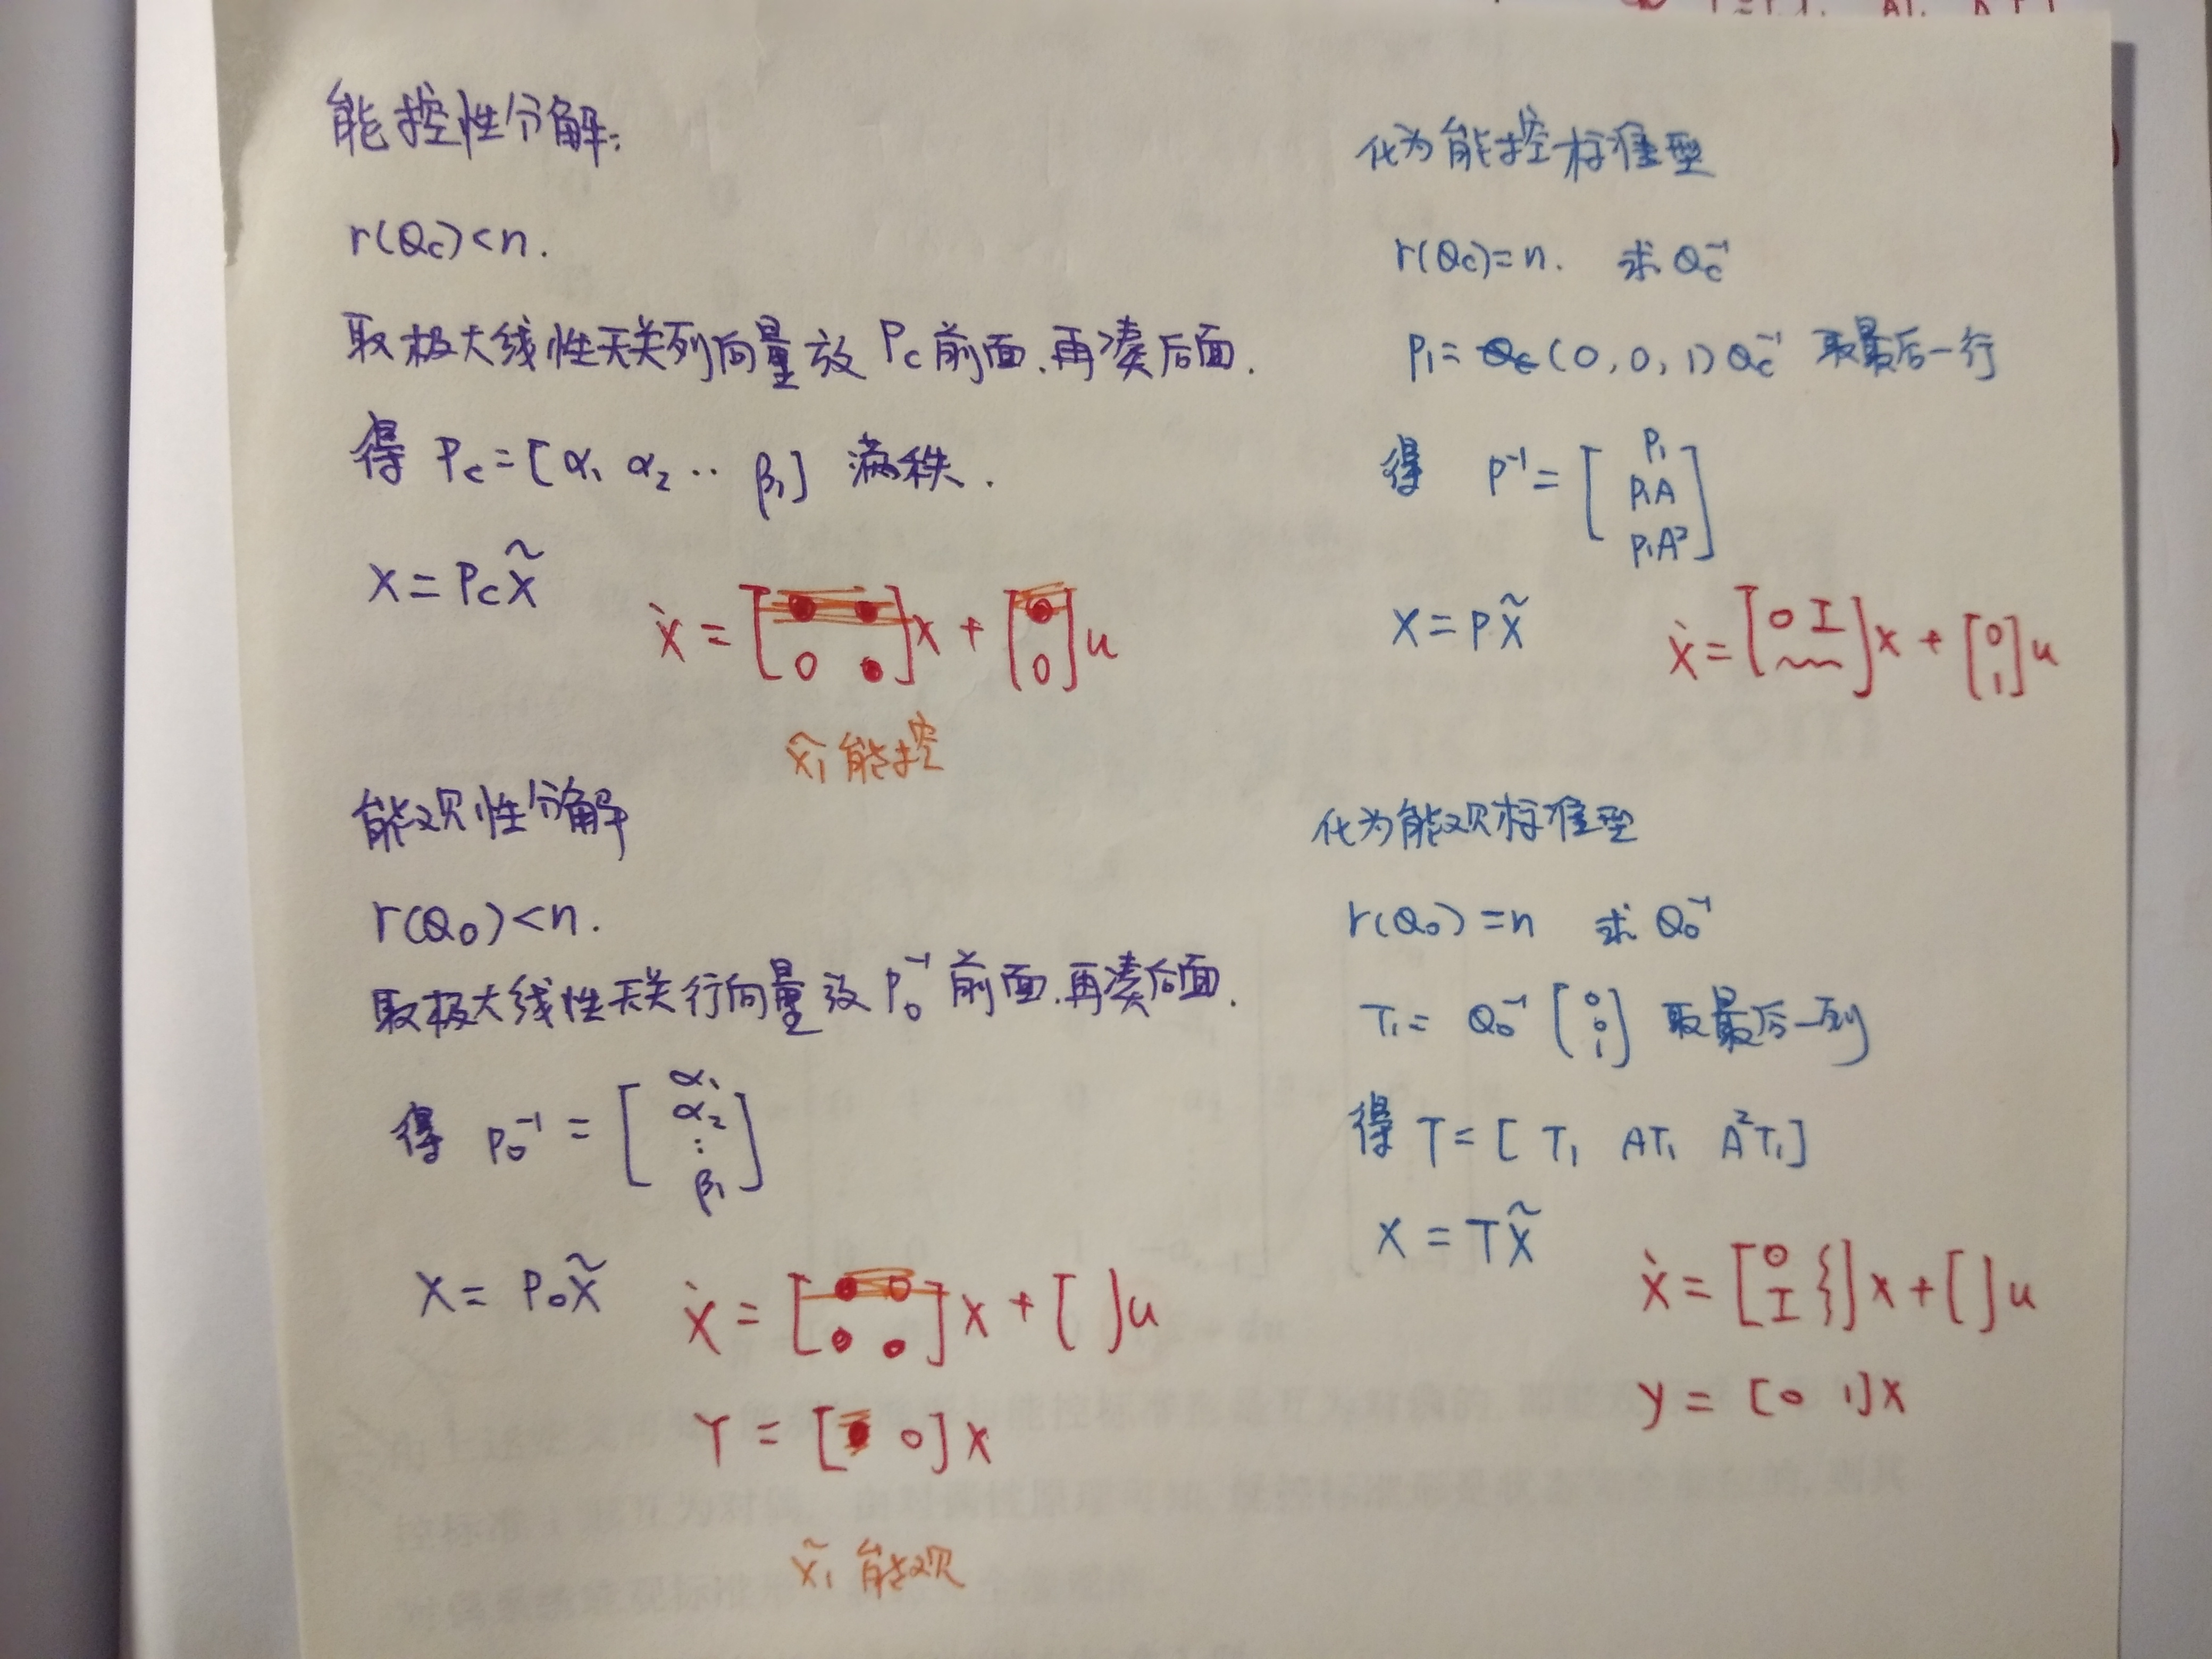 能控性分解:
r(Qc)<n.
取极大线性无关列向量放 Pc 前面.再凑后面.
得 Pc=[α₁ α₂ ‥ β₁] 满秩.
X=PcX̃
ẋ = [● ● 0 ●]x + [● 0]u
x̃₁ 能控
能观性分解
r(Q₀)<n.
取极大线性无关行向量放 P₀⁻¹ 前面.再凑后面.
得 P₀⁻¹ = [α₁ α₂ ⋮ β₁]
X= P₀X̃
ẋ = [● 0 ● ●]x + [ ]u
Y = [● 0]x
x̃₁ 能观
化为能控标准型
r(Qc)=n. 求 Qc⁻¹
P₁= (0,0,1)Qc⁻¹ 取最后一行
得 P⁻¹= [P₁ P₁A P₁A²]
X=PX̃
ẋ=[0 I ~~]x + [0 1]u
化为能观标准型
r(Q₀)=n 求 Q₀⁻¹
T₁= Q₀⁻¹ [0 0 1] 取最后一列
得 T=[ T₁ AT₁ A²T₁]
X = TX̃
ẋ = [0 I ⧙]x+[ ]u
y = [0 1]x